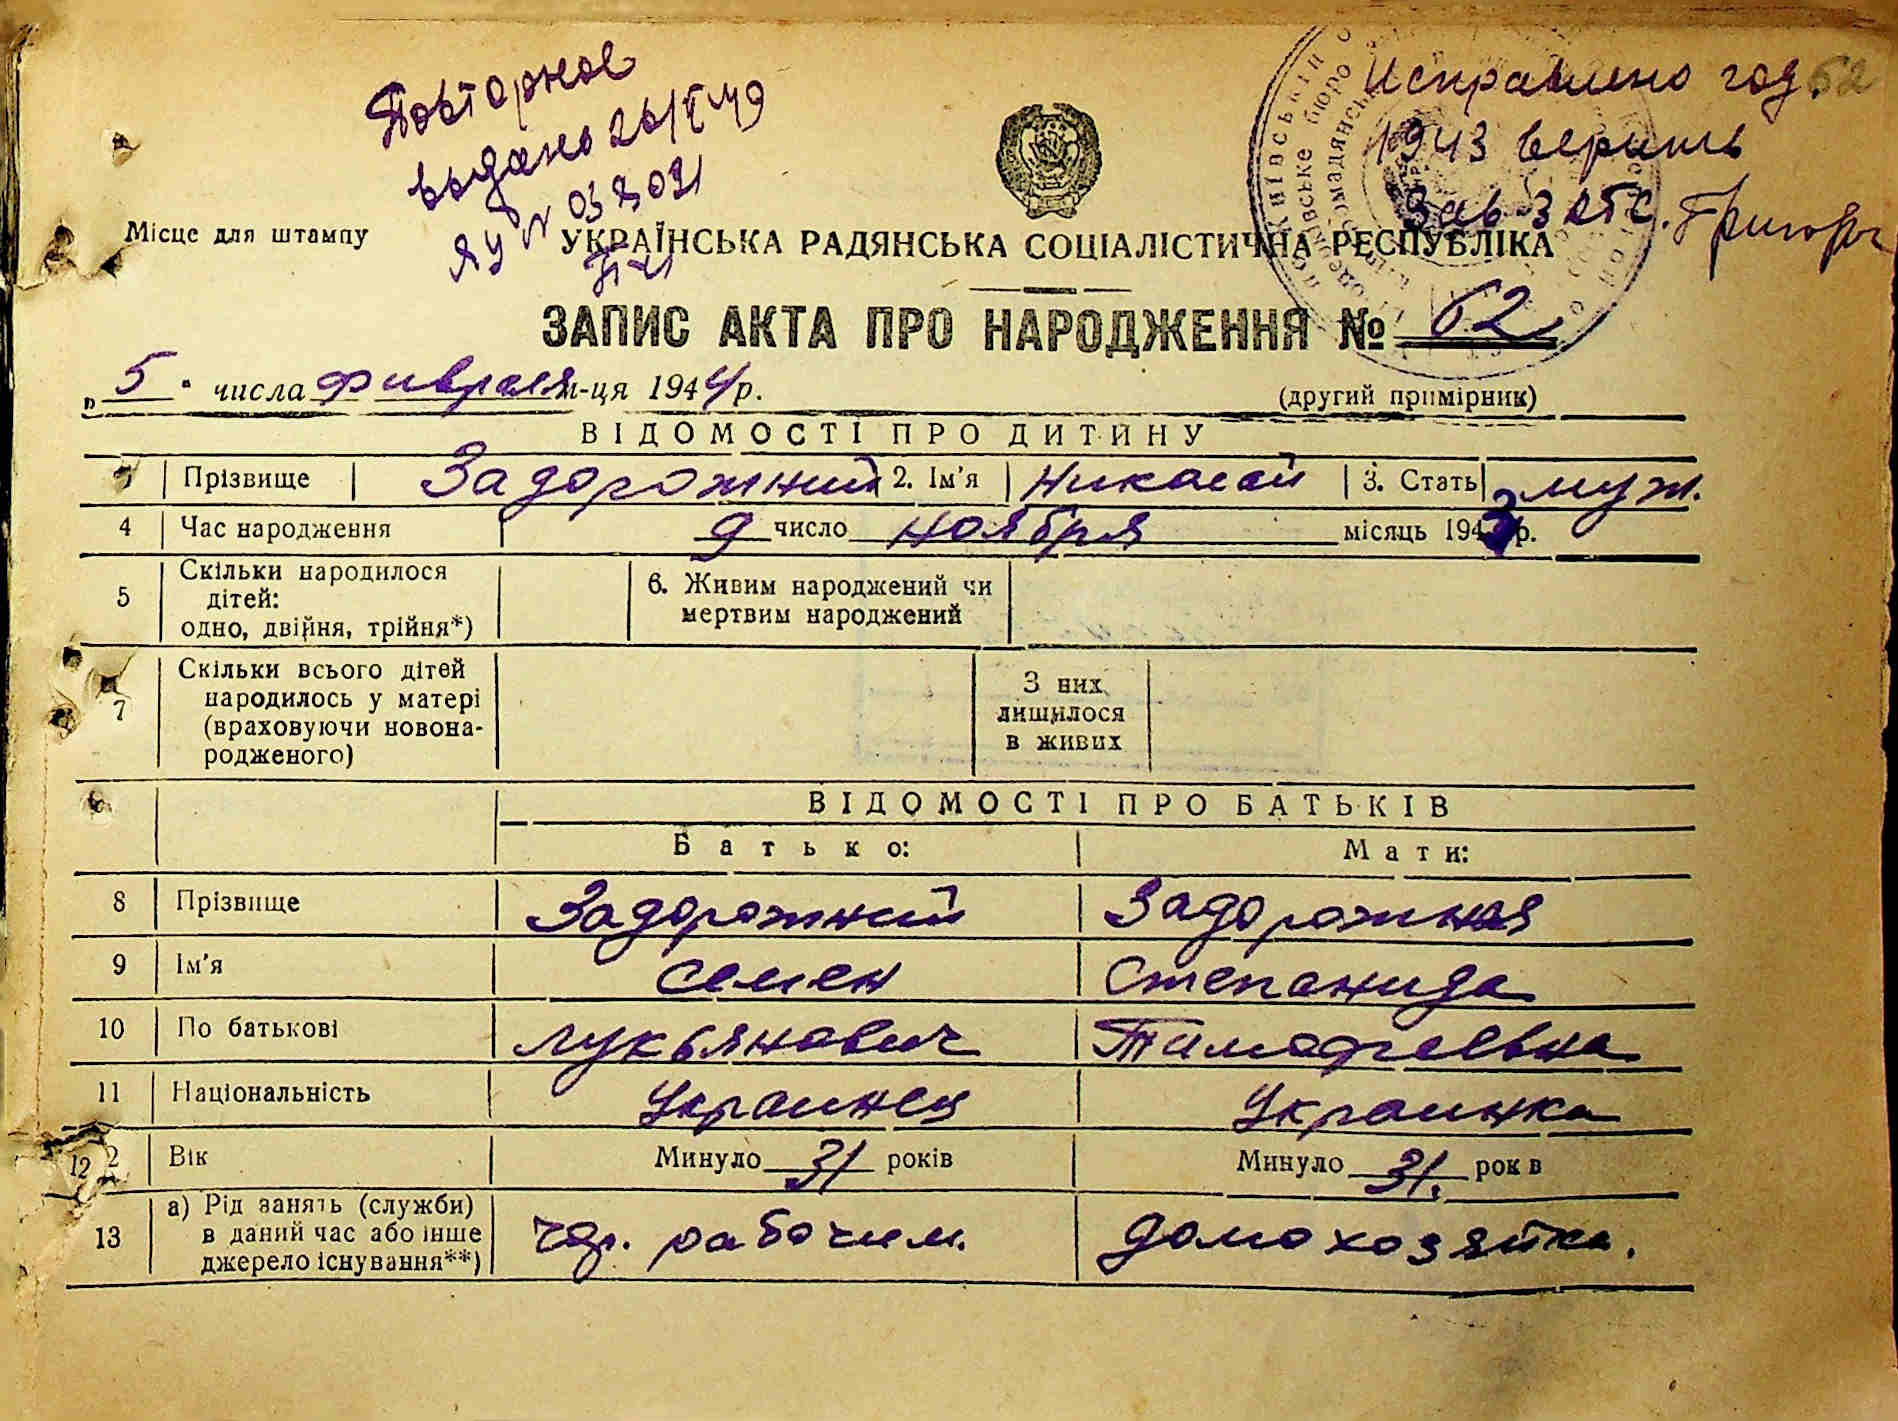 Повторное
выдано 26/V 49
ЯУ № 038031
Исправлено год. 62
1943 верить
Зав. Загс. Григорь
Місце для штампу
УКРАЇНСЬКА РАДЯНСЬКА СОЦІАЛІСТИЧНА РЕСПУБЛІКА
ЗАПИС АКТА ПРО НАРОДЖЕННЯ № 62
„ 5 " числа февраля м-ця 1944 р.
(другий примірник)
ВІДОМОСТІ ПРО ДИТИНУ
Прізвище Задорожний 2. Ім'я Николай 3. Стать муж.
4 Час народження 9 число ноября місяць 1943 р.
5 Скільки народилося дітей: одно, двійня, трійня*) 6. Живим народжений чи мертвим народжений
7 Скільки всього дітей народилось у матері (враховуючи новонародженого) З них лишилося в живих
ВІДОМОСТІ ПРО БАТЬКІВ
Батько: Мати:
8 Прізвище Задорожний Задорожная
9 Ім'я Семен Степанида
10 По батькові Лукьянович Тимофеевна
11 Національність Украинец Украинка
12 Вік Минуло 31 років Минуло 31. рок в
13 а) Рід занять (служби) в даний час або інше джерело існування**) рабочим. домохозяйка.